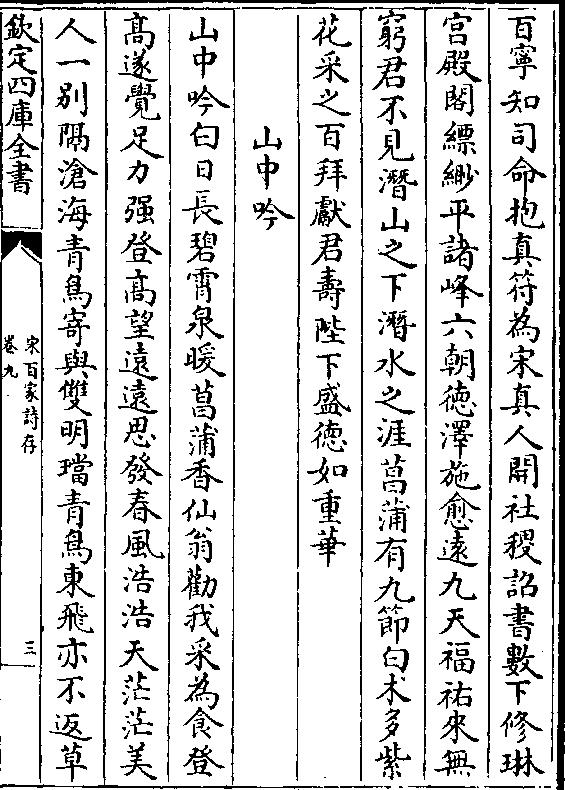 百寧知司命抱真符為宋真人開社稷詔書數下修琳
宮殿閣縹緲平諸峰六朝徳澤施愈遠九天福祐來無
窮君不見潛山之下潛水之涯菖蒲有九節白朮多紫
花采之百拜獻君壽陛下盛徳如重華
山中吟
山中吟白日長碧霄泉暖菖蒲香仙翁勸我采為食登
髙遂覺足力强登髙望逺逺思發春風浩浩天茫茫美
人一别隔滄海青鳥寄與雙明璫青鳥東飛亦不返草
欽定四庫全書
宋百家詩存
卷九
三